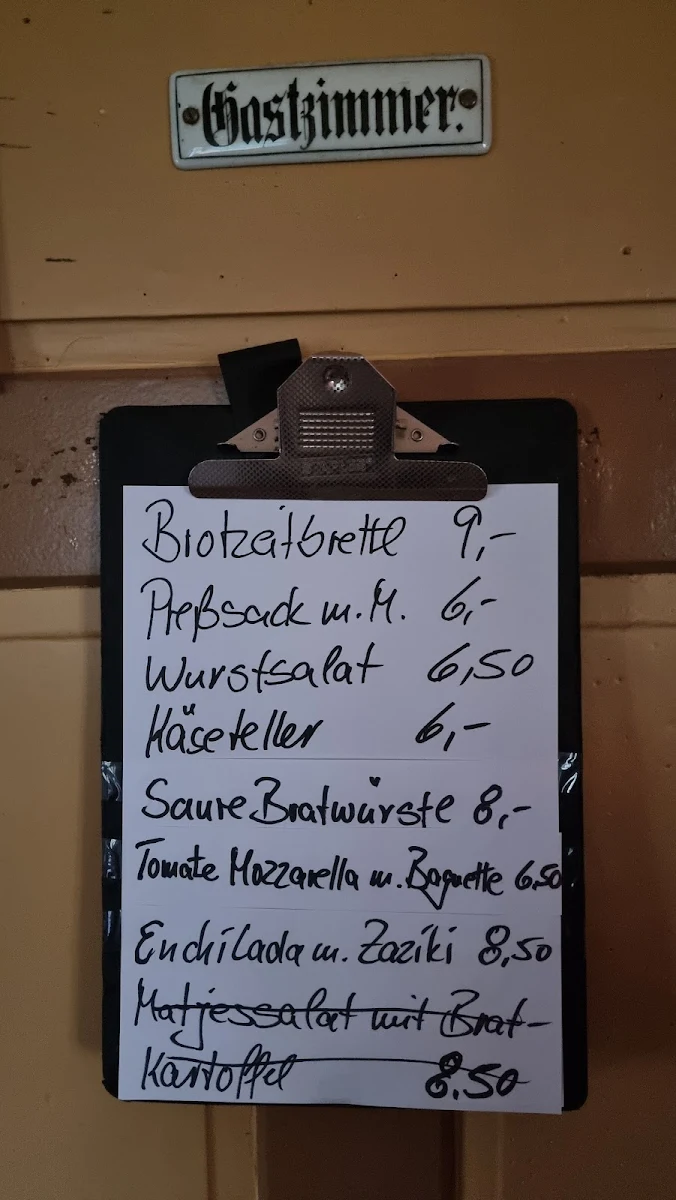 Gastzimmer.
Brotzeitbrettl 9,-
Preßsack m. M. 6,-
Wurstsalat 6,50
Käseteller 6,-
Saure Bratwürste 8,-
Tomate Mozzarella m. Baguette 6.50
Enchilada m. Zaziki 8,50
Matjessalat mit Brat-
Kartoffel 8.50